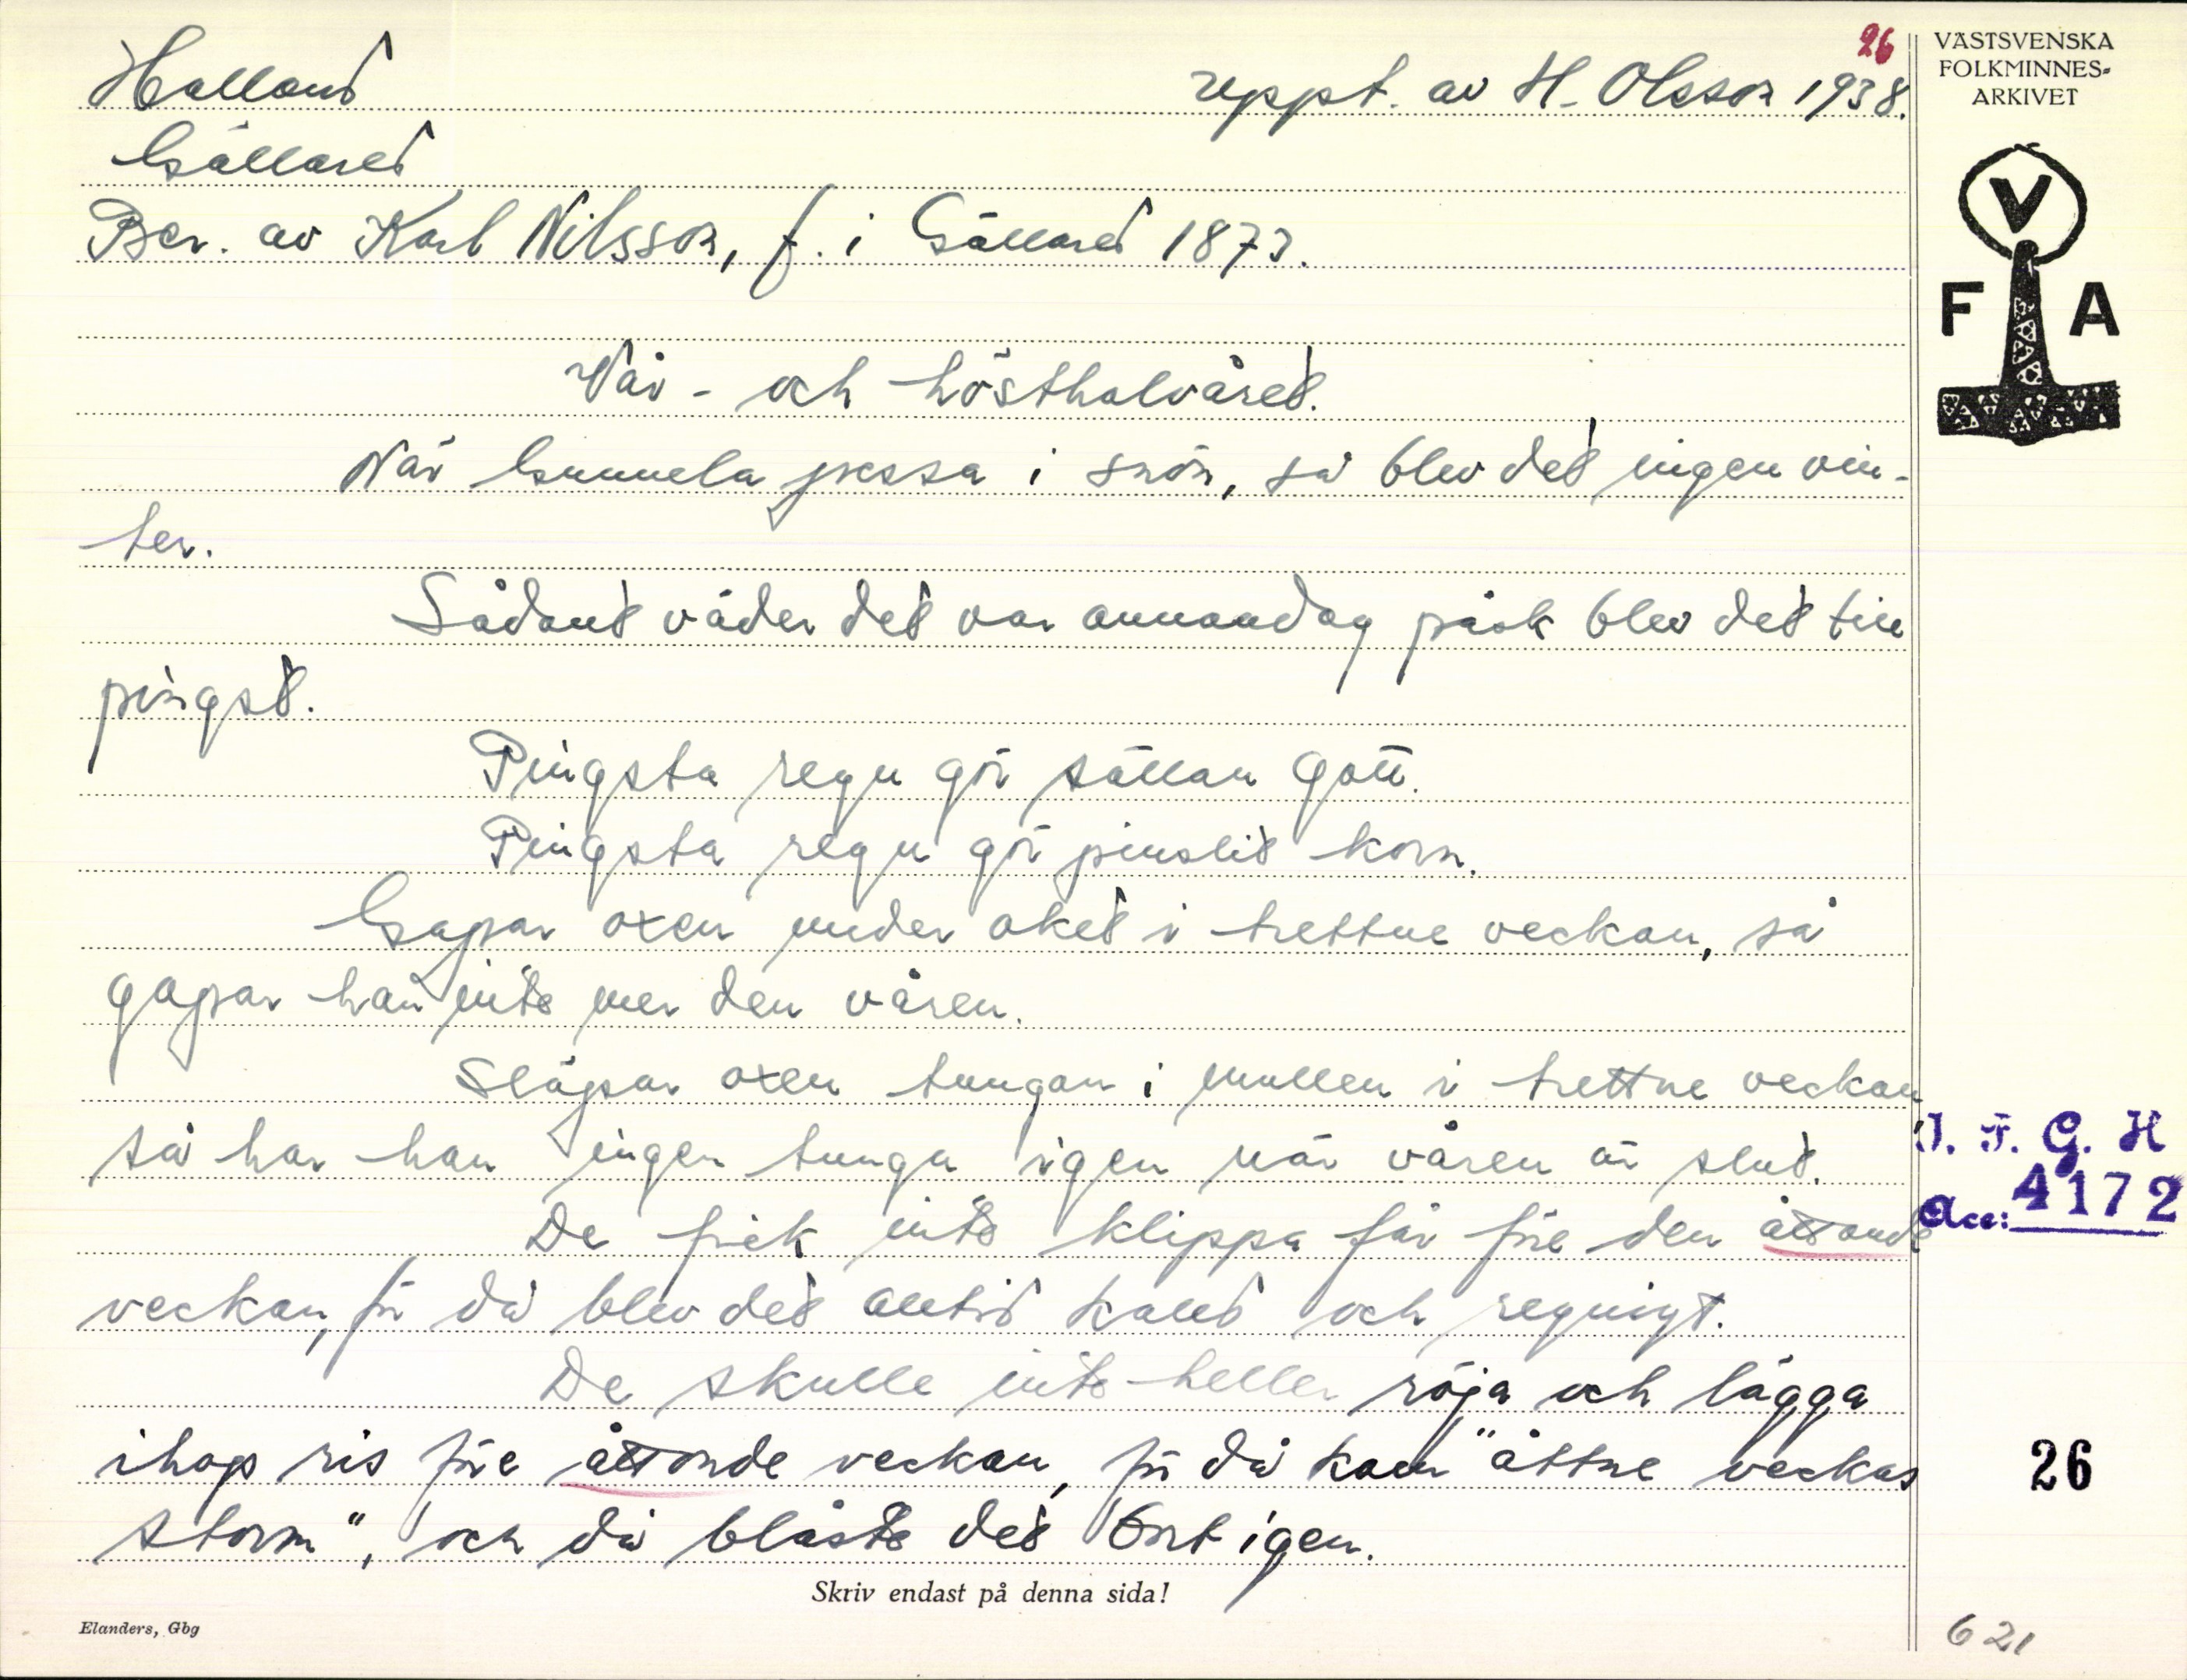 26
Halland
uppt. av H. Olsson 1938.
Gällared
Ber. av Karl Nilsson, f. i Gällared 1873.
Vår- och hösthalvåret.
När Gunnela pessa i snön, så blev det ingen vin-
ter.
Sådant väder det var annandag påsk blev det till
pingst.
Pingsta regn gör sällan gott.
Pingsta regn gör pinslit korn.
Gapar oxen under oket i trettne veckan, så
gapar han inte mer den våren.
Släpar oxen tungan i mullen i trettne veckan
så har han ingen tunga igen när våren är slut.
De fick inte klippa får före den åttonde
veckan, för då blev det alltid kallt och regnigt.
De skulle inte heller röja och lägga
ihop ris före åttonde veckan, för då kom "åttne veckas
storm", och då blåste det bort igen.
Skriv endast på denna sida!
Elanders, Gbg
VÄSTSVENSKA
FOLKMINNES-
ARKIVET
V
F A
I. F. G. H
Acc: 4172
26
621